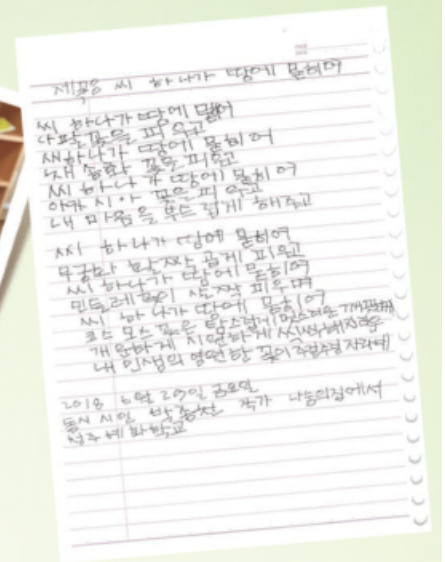 제목 씨 하나가 땅에 묻히어
씨 하나가 땅에 묻혀
나팔꽃을 피우고
씨 하나가 땅에 묻히어
꽃을 피우고
씨 하나가 땅에 묻히어
아카시아 꽃을 피우고
내 마음을 부드럽게 해주고
씨 하나가 땅에 묻히어
무궁화 활짝 곱게 피우고
씨 하나가 땅에 묻히어
민들레 살짝 피우며
씨 하나가 땅에 묻히어
코스모스 꽃은 탐스럽게
개운하게 시원하게
내 인생의 영원한 꽃이 주렁주렁 자라네
2018 6월 29일 금요일
동시 시인 박종찬 작가 나눔의집에서
성주혜화학교